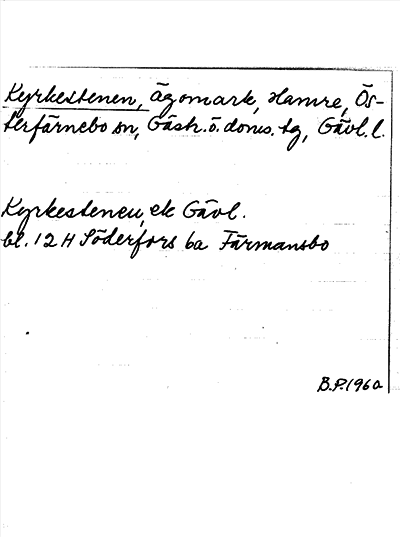 Kyrkestenen, Ägomark, Hamre, Ös-
terfärnebo sn, Gästr. ö. doms. tg, Gävl. l.
Kyrkestenen, ek Gävl.
bl. 12 H Söderfors ba Färmansbo
B.P. 1960